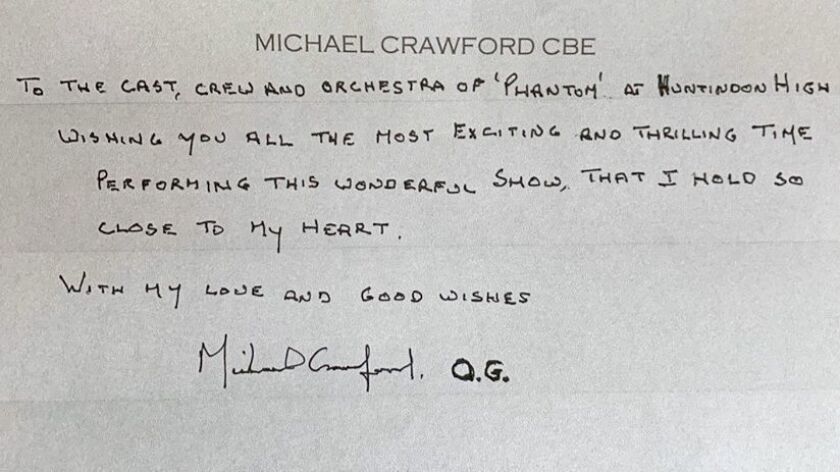 MICHAEL CRAWFORD CBE
TO THE CAST, CREW AND ORCHESTRA OF 'PHANTOM' AT HUNTINDON HIGH
WISHING YOU ALL THE MOST EXCITING AND THRILLING TIME
PERFORMING THIS WONDERFUL SHOW, THAT I HOLD SO
CLOSE TO MY HEART.
WITH MY LOVE AND GOOD WISHES
Michael Crawford. O.G.